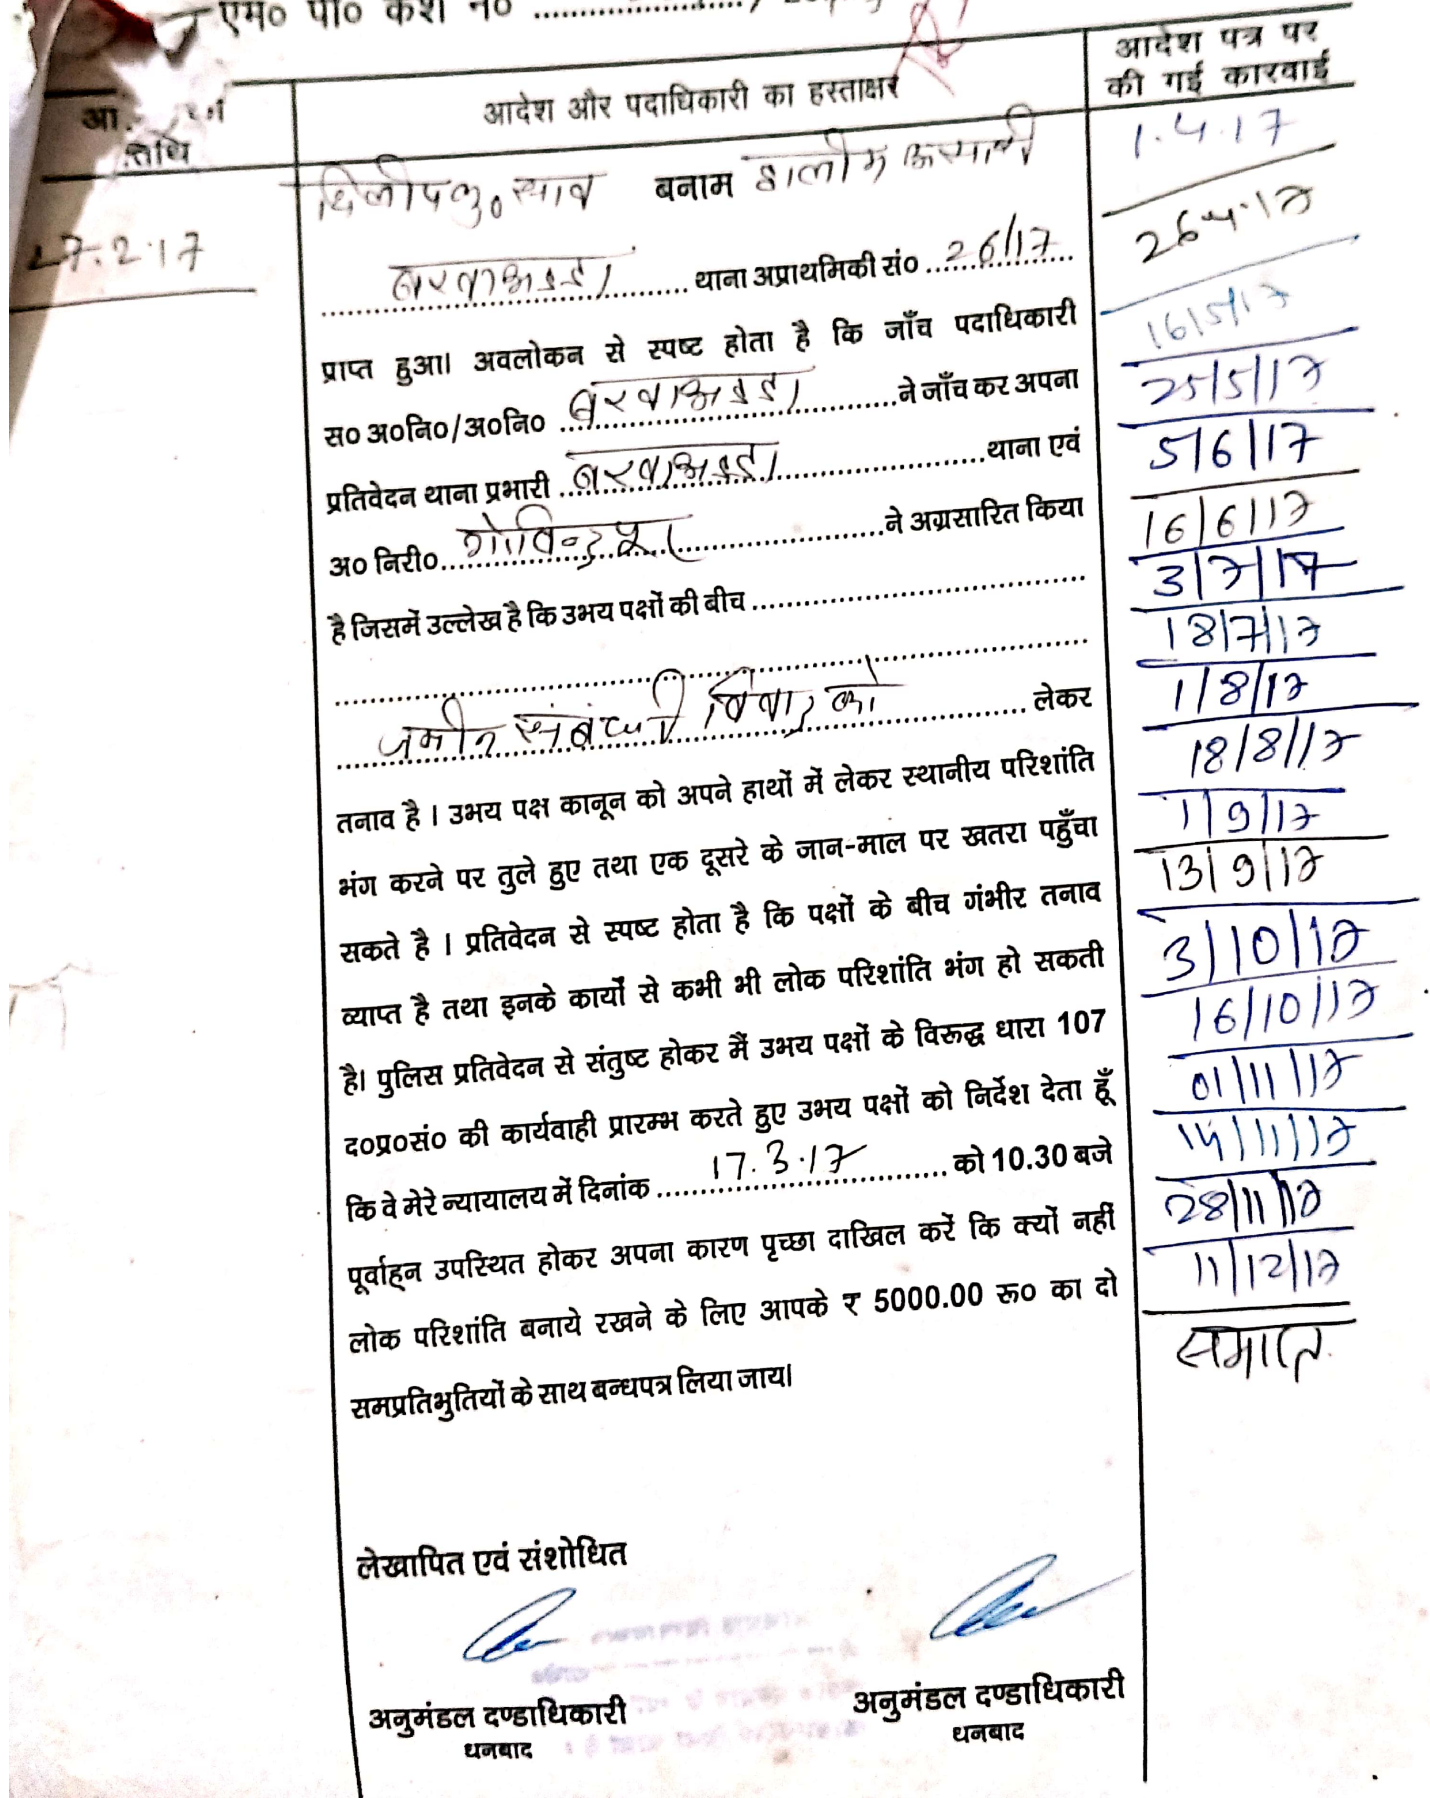 एम० पी० केश नं० ....................../
आदेश और पदाधिकारी का हस्ताक्षर
आदेश पत्र पर
की गई कारवाई
तिथि
दिलीप कु० साव बनाम हालीम अन्सारी
27.2.17
बरवाअड्डा थाना अप्राथमिकी सं० 26/17
प्राप्त हुआ। अवलोकन से स्पष्ट होता है कि जाँच पदाधिकारी
स० अ०नि०/अ०नि० बरवाअड्डा ने जाँच कर अपना
प्रतिवेदन थाना प्रभारी बरवाअड्डा थाना एवं
अ० निरी० गोविन्दपुर ने अग्रसारित किया
है जिसमें उल्लेख है कि उभय पक्षों की बीच
जमीन संबंधी विवाद को लेकर
तनाव है । उभय पक्ष कानून को अपने हाथों में लेकर स्थानीय परिशांति
भंग करने पर तुले हुए तथा एक दूसरे के जान-माल पर खतरा पहुँचा
सकते है । प्रतिवेदन से स्पष्ट होता है कि पक्षों के बीच गंभीर तनाव
व्याप्त है तथा इनके कार्यों से कभी भी लोक परिशांति भंग हो सकती
है। पुलिस प्रतिवेदन से संतुष्ट होकर मैं उभय पक्षों के विरूद्ध धारा 107
द०प्र०सं० की कार्यवाही प्रारम्भ करते हुए उभय पक्षों को निर्देश देता हूँ
कि वे मेरे न्यायालय में दिनांक 17.3.17 को 10.30 बजे
पूर्वाह्न उपस्थित होकर अपना कारण पृच्छा दाखिल करें कि क्यों नहीं
लोक परिशांति बनाये रखने के लिए आपके ₹ 5000.00 रू० का दो
समप्रतिभुतियों के साथ बन्धपत्र लिया जाय।
लेखापित एवं संशोधित
अनुमंडल दण्डाधिकारी
धनबाद
अनुमंडल दण्डाधिकारी
धनबाद
1.4.17
26.4.17
16/5/17
25/5/17
5/6/17
16/6/17
3/7/17
18/7/17
1/8/17
18/8/17
1/9/17
13/9/17
3/10/17
16/10/17
01/11/17
14/11/17
28/11/17
11/12/17
समाप्त